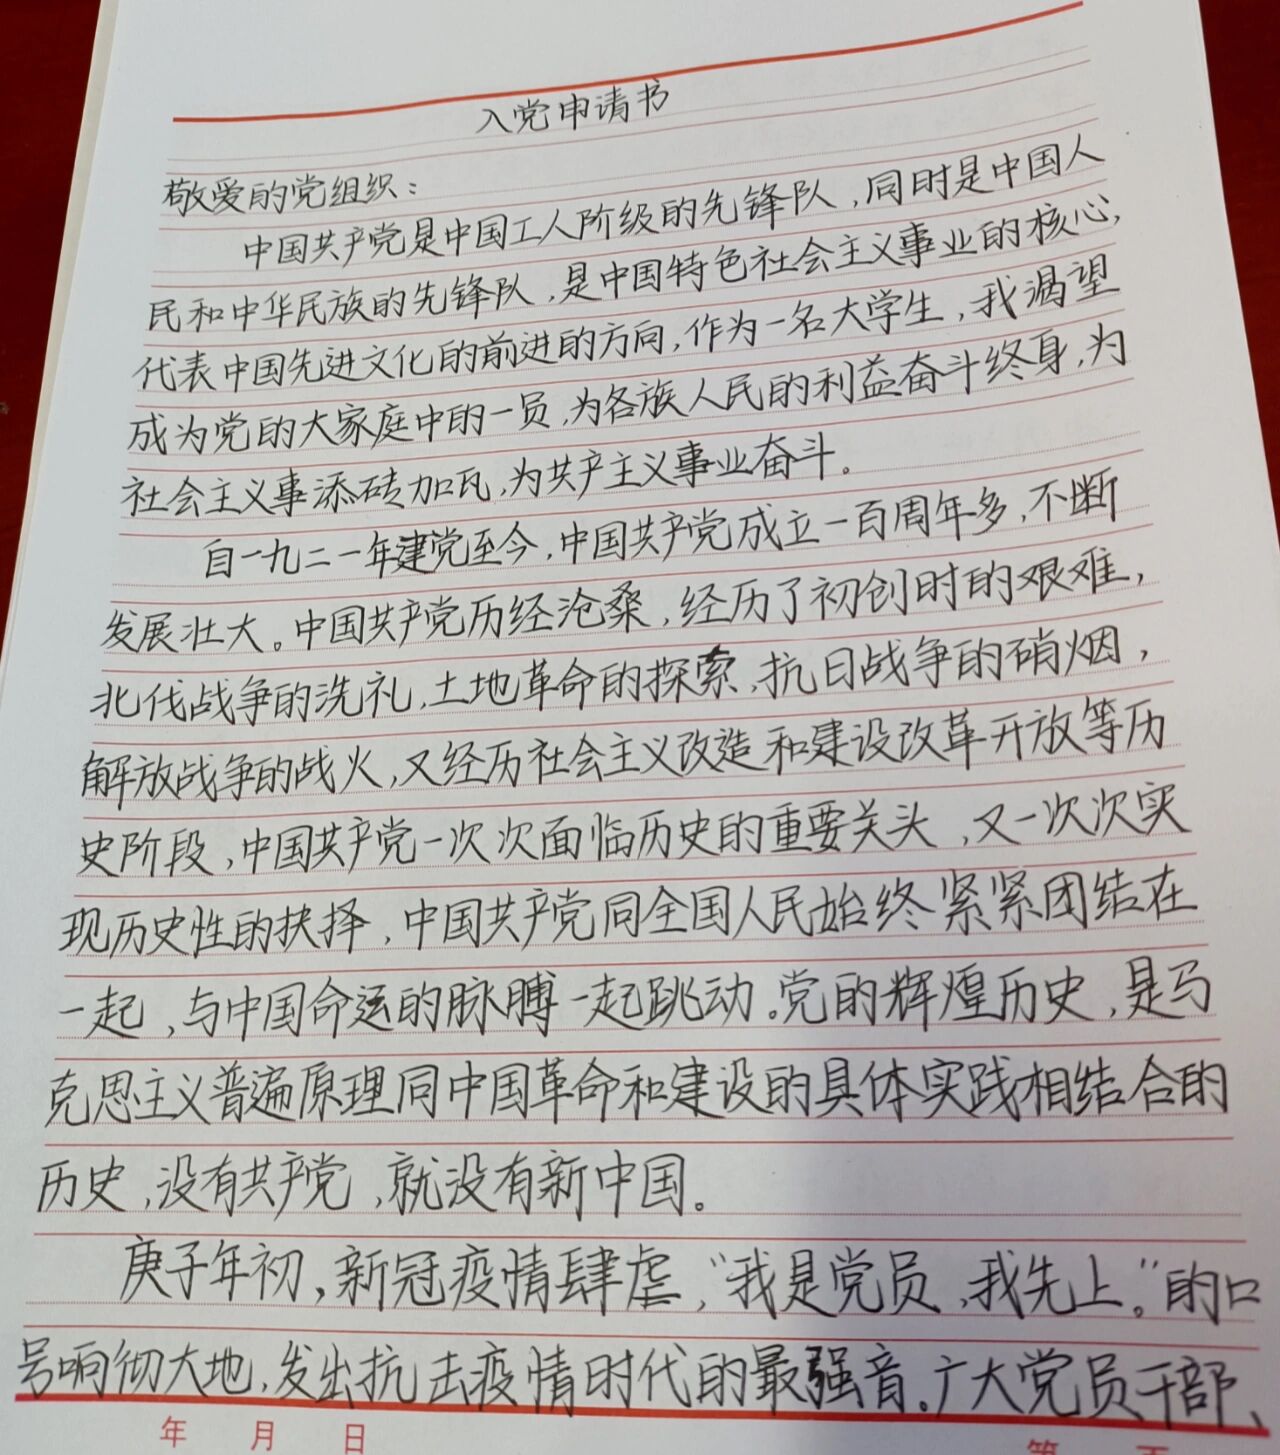 入党申请书
敬爱的党组织：
中国共产党是中国工人阶级的先锋队，同时是中国人
民和中华民族的先锋队，是中国特色社会主义事业的核心，
代表中国先进文化的前进的方向，作为一名大学生，我渴望
成为党的大家庭中的一员，为各族人民的利益奋斗终身，为
社会主义事添砖加瓦，为共产主义事业奋斗。
自一九二一年建党至今，中国共产党成立一百周年多，不断
发展壮大。中国共产党历经沧桑，经历了初创时的艰难，
北伐战争的洗礼，土地革命的探索，抗日战争的硝烟，
解放战争的战火，又经历社会主义改造和建设改革开放等历
史阶段，中国共产党一次次面临历史的重要关头，又一次次实
现历史性的抉择，中国共产党同全国人民始终紧紧团结在
一起，与中国命运的脉膊一起跳动。党的辉煌历史，是马
克思主义普遍原理同中国革命和建设的具体实践相结合的
历史，没有共产党，就没有新中国。
庚子年初，新冠疫情肆虐，“我是党员，我先上。”的口
号响彻大地，发出抗击疫情时代的最强音。广大党员干部、
年 月 日